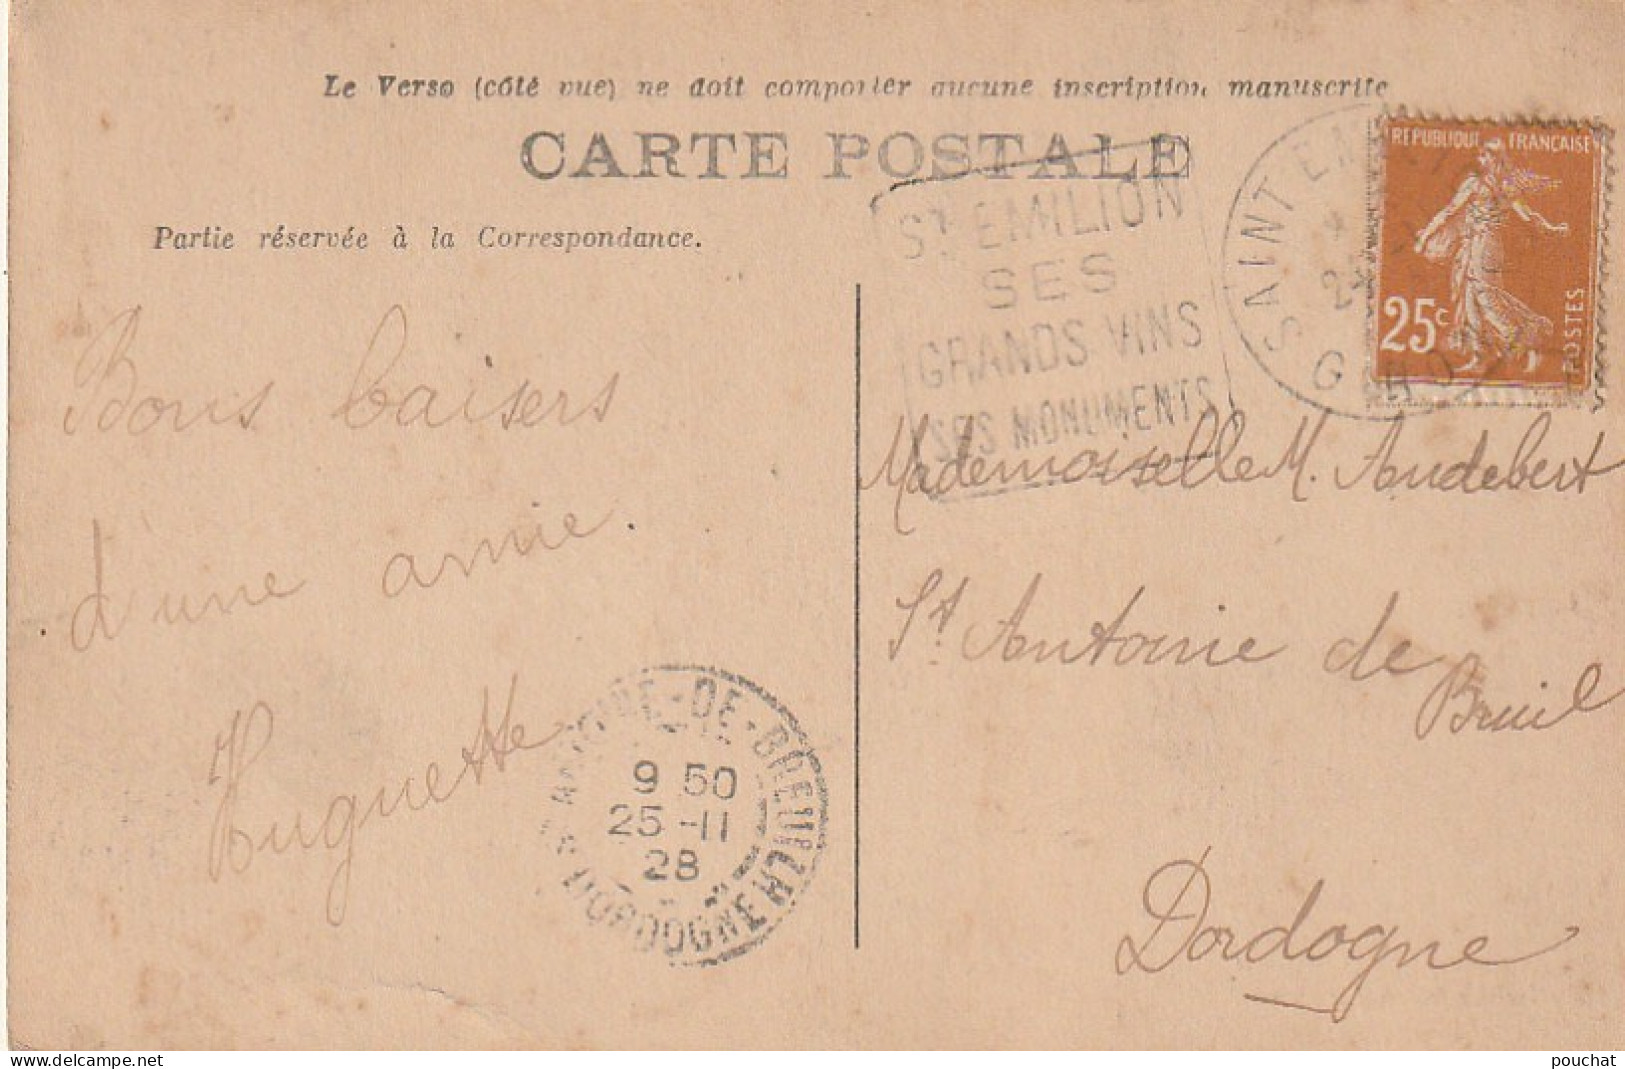 Le Verso (côté vue) ne doit comporter aucune inscription manuscrite
CARTE POSTALE
Partie réservée à la Correspondance.
St EMILION
SES
GRANDS VINS
SES MONUMENTS
SAINT EM
G
REPUBLIQUE FRANÇAISE
25c
POSTES
Bons baisers
d'une amie.
Huguette
Mademoiselle M. Audebert
St. Antoine de
Breuil
Dordogne
-DE-BREUILH
9 50
25 -11
28
DORDOGNE
pouchat